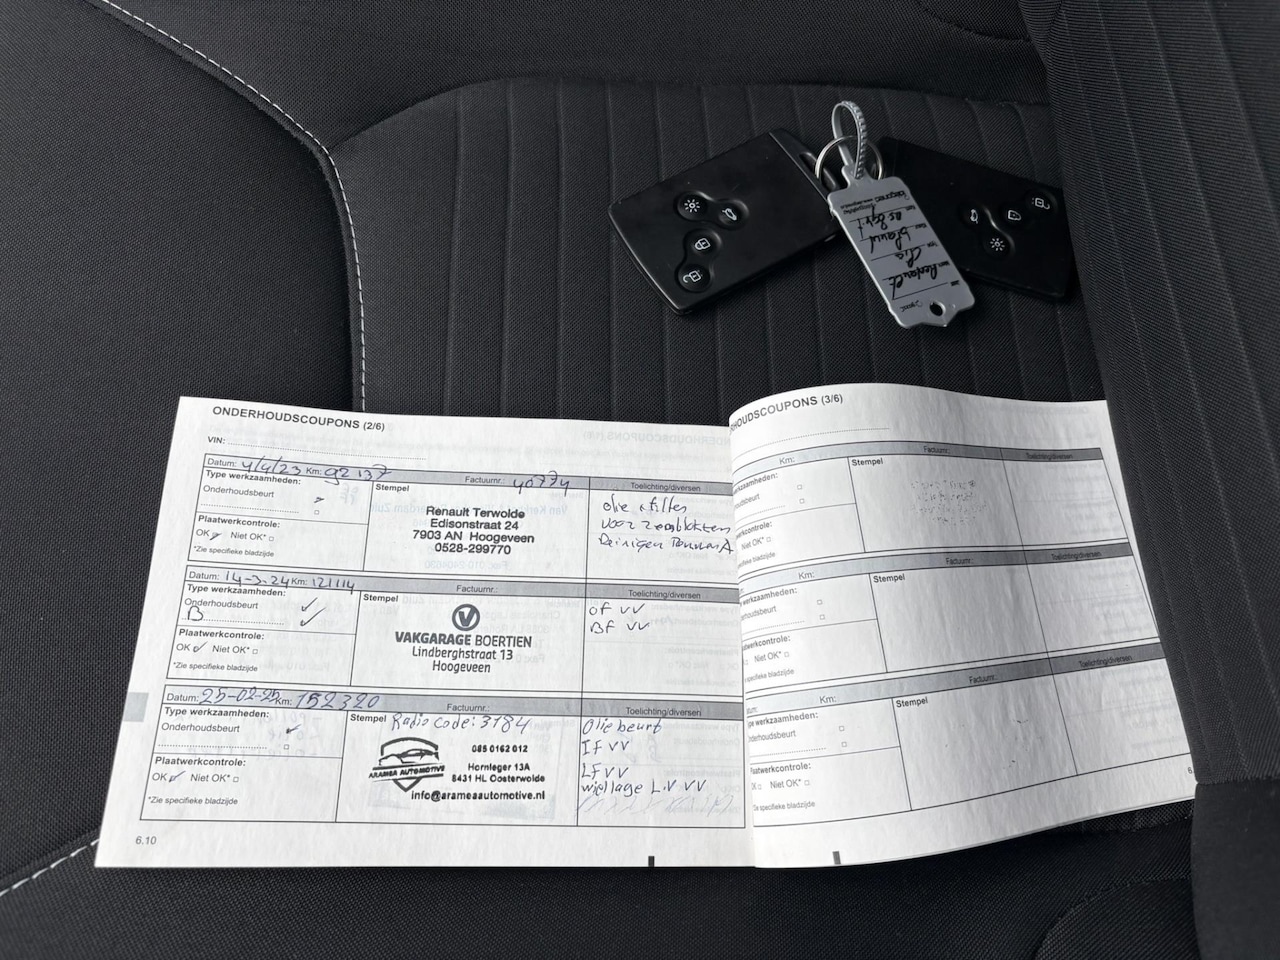 ONDERHOUDSCOUPONS (2/6)
VIN:
Datum: 4/4/23 Km: 92 137 Factuurnr.: 40774
Type werkzaamheden:
Onderhoudsbeurt
Plaatwerkcontrole:
OK Niet OK*
*Zie specifieke bladzijde
Stempel
Renault Terwolde
Edisonstraat 24
7903 AN Hoogeveen
0528-299770
Toelichting/diversen
olie + filter
voor
Reinigen
Datum: 14-3-24 Km: 121114 Factuurnr.:
Type werkzaamheden:
Onderhoudsbeurt
B
Plaatwerkcontrole:
OK Niet OK*
*Zie specifieke bladzijde
Stempel
VAKGARAGE BOERTIEN
Lindberghstraat 13
Hoogeveen
Toelichting/diversen
OF VV
BF VV
Datum: 25-02-25 Km: 152320 Factuurnr.:
Type werkzaamheden:
Onderhoudsbeurt
Plaatwerkcontrole:
OK Niet OK*
*Zie specifieke bladzijde
Stempel Radio code: 3184
ARAMEA AUTOMOTIVE
085 0162 012
Hornleger 13A
8431 HL Oosterwolde
info@arameaautomotive.nl
Toelichting/diversen
Olie beurt
If VV
LF VV
wiellage L.V VV
6.10
HOUDSCOUPONS (3/6)
Km: Factuurnr.:
werkzaamheden:
houdsbeurt
Stempel
Toelichting/diversen
controle:
Niet OK*
specifieke bladzijde
Km: Factuurnr.:
werkzaamheden:
houdsbeurt
Stempel
Toelichting/diversen
werkcontrole:
Niet OK*
specifieke bladzijde
Km: Factuurnr.:
werkzaamheden:
derhoudsbeurt
Stempel
Toelichting/diversen
aatwerkcontrole:
Niet OK*
specifieke bladzijde
6.
blauw
Clio
Renault